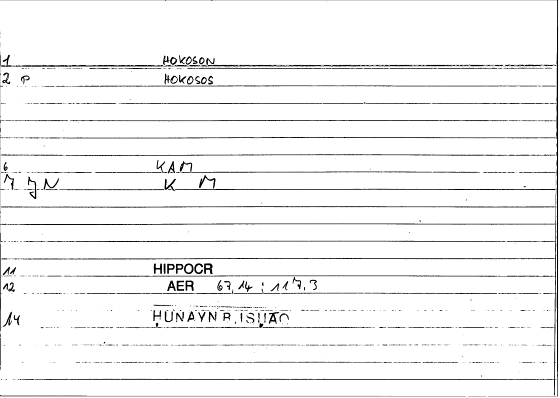 1 HOKOSON
2 P HOKOSOS
6 KAM
7 JN K M
11 HIPPOCR
12 AER 67,14 ; 117,3
14 ḤUNAYN B. ISḤĀQ